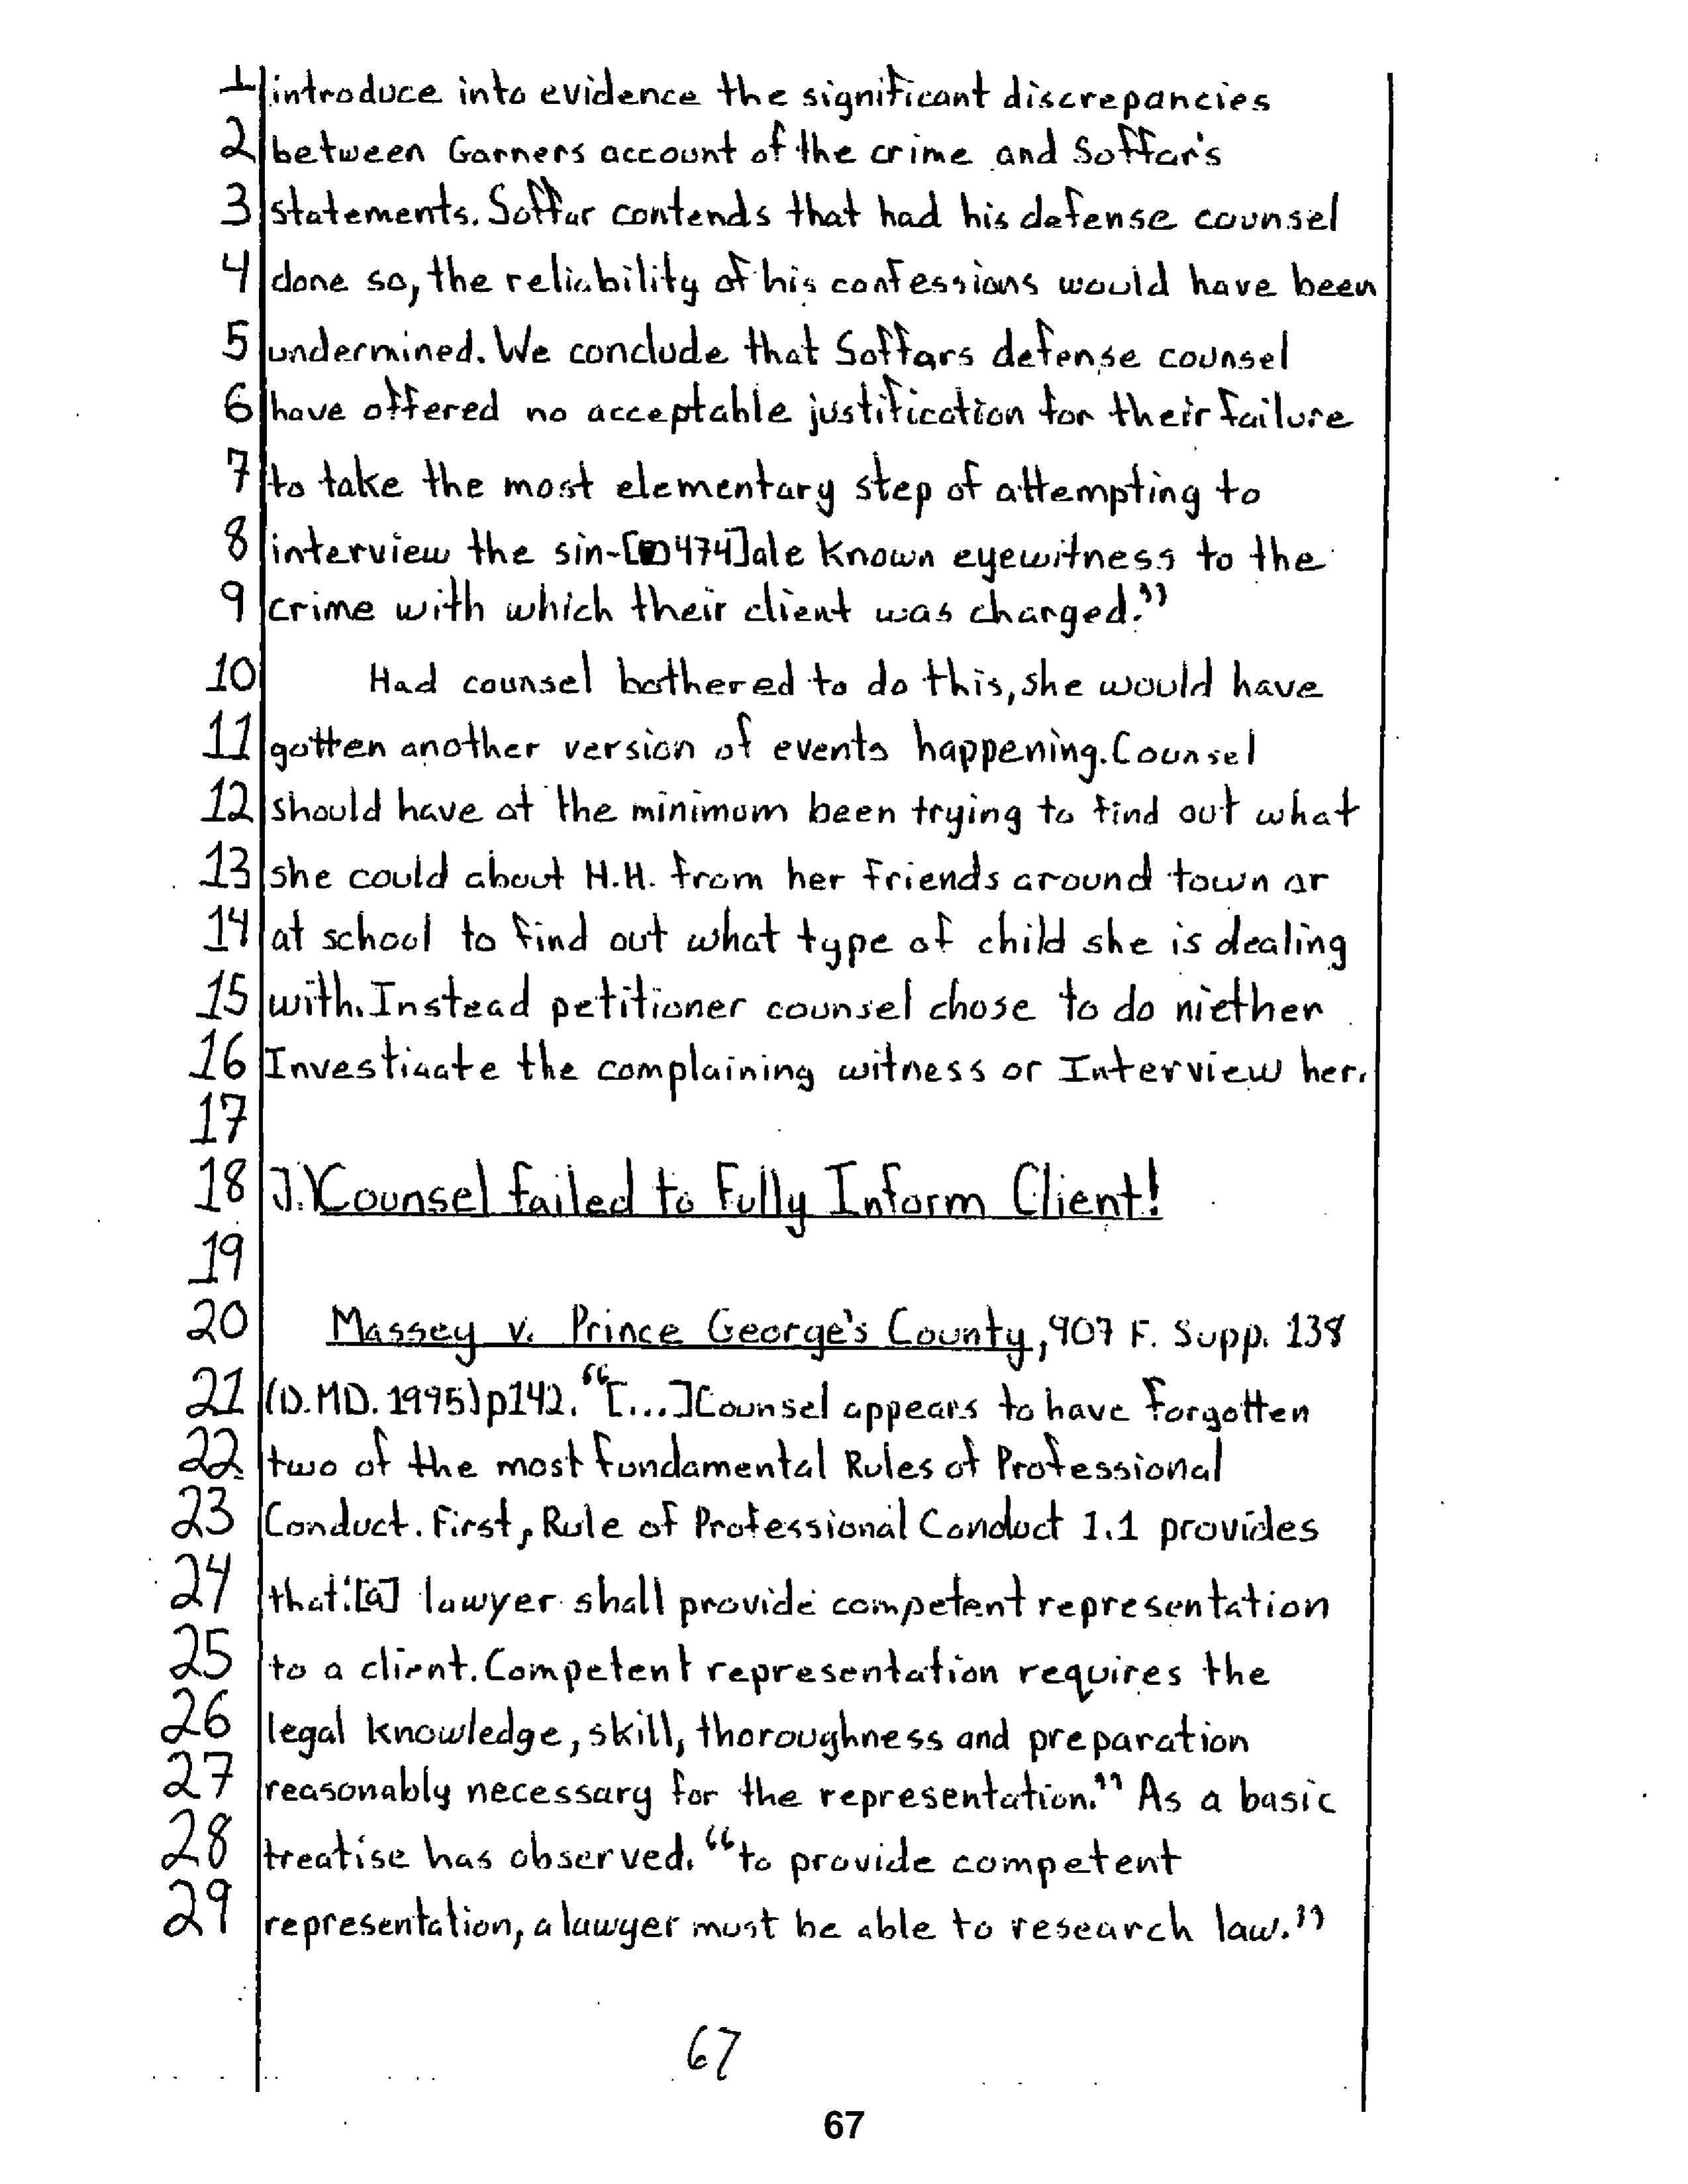 1 introduce into evidence the significant discrepancies
2 between Garners account of the crime and Soffar's
3 statements. Soffar contends that had his defense counsel
4 done so, the reliability of his confessions would have been
5 undermined. We conclude that Soffars defense counsel
6 have offered no acceptable justification for their failure
7 to take the most elementary step of attempting to
8 interview the sin-[474]ale known eyewitness to the
9 crime with which their client was charged."
10 Had counsel bothered to do this, she would have
11 gotten another version of events happening. Counsel
12 should have at the minimum been trying to find out what
13 she could about H.H. from her friends around town or
14 at school to find out what type of child she is dealing
15 with. Instead petitioner counsel chose to do niether
16 Investigate the complaining witness or Interview her.
17
18 J.) Counsel failed to Fully Inform Client!
19
20 Massey v. Prince George's County, 907 F. Supp. 138
21 (D.MD. 1995) p142. "[...] Counsel appears to have forgotten
22 two of the most fundamental Rules of Professional
23 Conduct. First, Rule of Professional Conduct 1.1 provides
24 that: '[a] lawyer shall provide competent representation
25 to a client. Competent representation requires the
26 legal knowledge, skill, thoroughness and preparation
27 reasonably necessary for the representation." As a basic
28 treatise has observed. "to provide competent
29 representation, a lawyer must be able to research law."
67
67